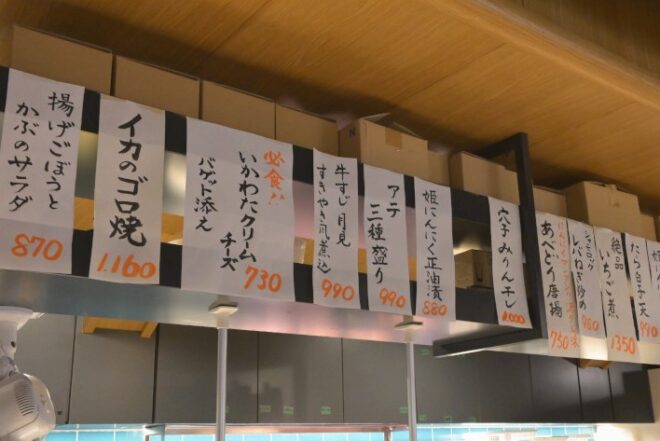 揚げごぼうと
かぶのサラダ
870
イカのゴロ焼
1.160
必食!!
いかわたクリーム
チーズ
バゲット添え
730
牛すじ月見
すきやき風煮込
990
アテ
三種盛り
990
姫にんにく正油漬
880
穴子みりん干し
1.000
あべどう唐揚
750
シャムロック
レバねぎ炒め
980
絶品
いちご煮
1350
たら白子天
990
姫